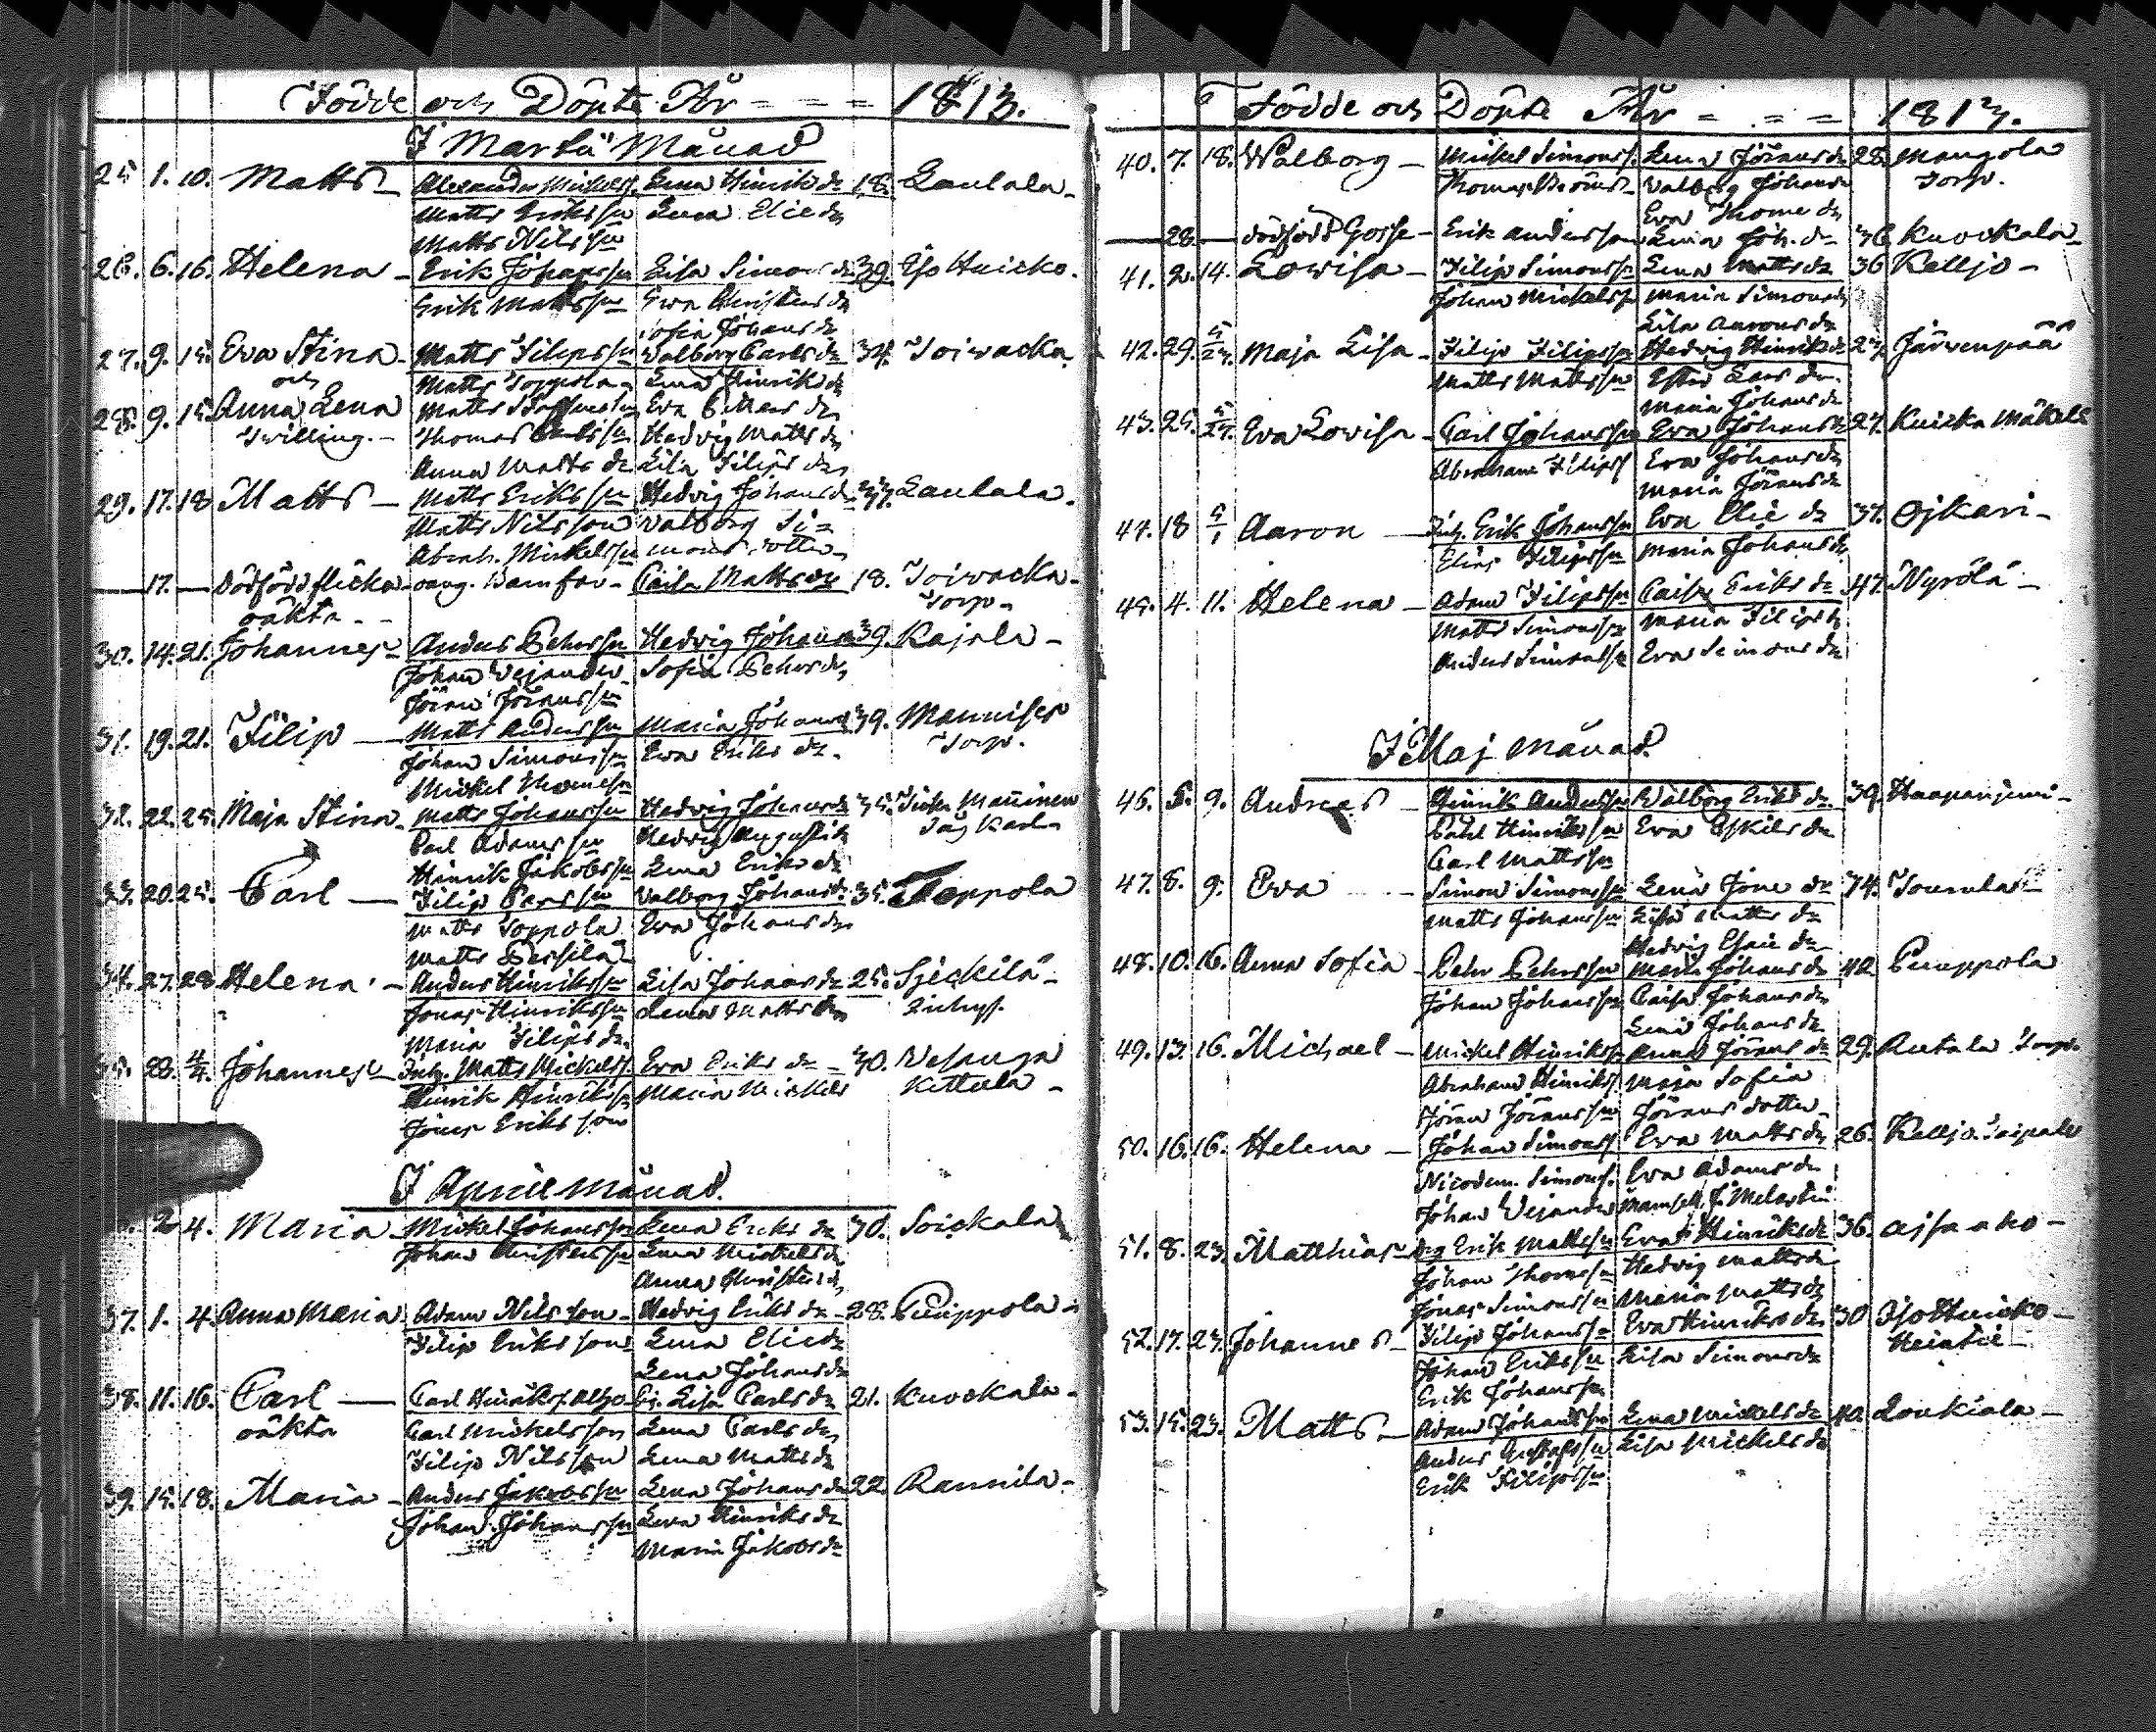 Födde och Döpte År = = = 1813.
I Martii Månad
25 1. 10. Matts Alexander Mickelss. Lena Hinriks dr 18. Laulala
Matts Eriksson Lena Elie dr
Matts Nilsson
26. 6. 16. Helena Erik Johansson Lisa Simons dr 39.
Erik Mattsson Eva Christers dr
Sofia Johans dr
27. 9. 15. Eva Stina Matts Filipsson Walborg Carls dr 34. Toiwacka
och Matts Toppola Lena Hinriks dr
28. 9. 15. Anna Lena Matts Staffansson Eva
Twilling. Thomas Hedvig Matts dr
Anna Matts dr Lisa Filips dr
29. 17. 18 Matts Matts Eriksson Hedvig Johans dr 37. Laulala.
Matts Nilsson Walborg Si=
Abrah. Mickelsson mons dotter
17. Dödfödd flicka oang. Barnfar Caisa Matts dr 18. Toiwacka
oäkta Torp
30. 14. 21. Johannes Anders Pehrsson Hedvig Johans 39. Kajala
Johan Wejander Sofia Pehrs dr
Jöran Jöransson
31. 19. 21. Filip Matts Andersson Maria Johans 39. Mannisen
Johan Simonsson Eva Eriks dr Torp.
Mickel Thomesson
32. 22. 25. Maja Stina Matts Johansson Hedvig Johans dr 35. Manninen
Carl Adamsson Hedvig August dr
Hinrik Jakobsson Lena Eriks dr
33. 20. 25. Carl Filip Carlsson Valborg Johans dr 35. Toppola
Matts Toppola Eva Johans dr
Matts
34. 27. 28 Helena Anders Hinriksson Lisa Johans dr 25.
Jonas Hinriksson Lena Matts dr Inhys.
Maria Filips dr
35. 28. 4/4. Johannes Inh. Matts Mickelss. Eva Eriks dr 30. Wesanga
Hinrik Hinriksson Maria Mickels Kettula
Eriksson
I Aprill månad.
2 4. Maria Mickel Johansson Lena Eriks dr 30. Soickala
Johan Christersson Lena Mickels dr
Anna Christers dr
37. 1. 4. Anna Maria Adam Nilsson Hedvig Eriks dr 28. Puuppola
Filip Eriksson Lena Elie dr
Lena Johans dr
38. 11. 16. Carl Carl Hinrikss. Lisa Carls dr 21. Kuockala
oäkta Carl Mickelsson Lena Carls dr
Filip Nilsson Lena Matts dr
39. 15. 18. Maria Anders Jakobsson Lena Johans dr 22. Rannila
Johan Johansson Lena Hinriks dr
Maria Jakobs dr
Födde och Döpte År = = = 1813.
40. 7. 18. Walborg Mickel Simonss. Lena Jörans dr 28. Mangola
Thomas Valborg Johans dr Torp.
Eva Thome dr
28. dödfödd Gosse Erik Andersson Lena Joh. dr 36 Kuockala
41. 2. 14. Lowisa Filip Simonsson Lena Matts dr 36 Keljo
Johan Mickelsson Maria Simons dr
Lisa Aarons dr
42. 29. Maja Lisa Filip Filipsson Hedvig Hinriks dr Järwenpää
Matts Mattsson Ester Lars dr.
Maria Johans dr
43. 25. Eva Lowisa Carl Johansson Eva Johans dr 27. Kuicka Mäkelä
Abraham Filipss Eva Johans dr
Maria Jörans dr
44. 18 5/1 Aaron Inh. Erik Johansson Eva Elie dr 37. Ojkari
Elias Filipsson Maria Johans dr
45. 4. 11. Helena Adam Filipsson Caisa Eriks dr 47. Nyrölä
Matts Simonsson Maria Filips dr
Anders Simonsson Eva Simons dr
I Maj månad.
46. 5. 9. Andreas Hinrik Andersson Walborg Eriks dr 39. Haapaniemi
Hinriksson Eva Eskils dr
Carl Mattsson
47. 8. 9. Eva Simon Simonsson Lena Jöns dr 34. Tourula
Matts Johansson Lisa Matts dr
Hedvig Esaie dr
48. 10. 16. Anna Sofia Pehr Pehrsson Maria Johans dr 42 Puuppola
Johan Johansson Caisa Johans dr
Lena Johans dr
49. 13. 16. Michael Mickel Hinriksson Anna Jörans dr 29. Rutala Torp.
Abraham Hinrikss. Maja Sofia
Jöran Jöransson Jörans dotter
50. 16. 16. Helena Johan Simonss Eva Matts dr 26. Keljo
Nicodem. Simonss. Eva Adams dr
Johan Wejander Mamsell
51. 8. 23. Matthias Erik Mattsson Eva Hinriks dr 36.
Johan Thomesson Hedvig Matts dr
Jonas Simonsson Maria Matts dr
52. 17. 23. Johannes Filip Johansson Eva Hinriks dr 30
Johan Eriksson Lisa Simons dr
Erik Johansson
53. 15. 23. Matts Adam Johansson Lena Mickels dr 40. Loukiala
Anders Gustafsson Lisa Mickels dr
Erik Filipsson